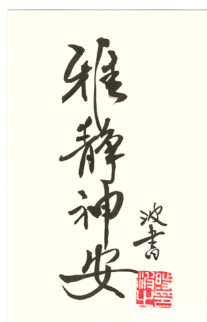 雅静神安
波書